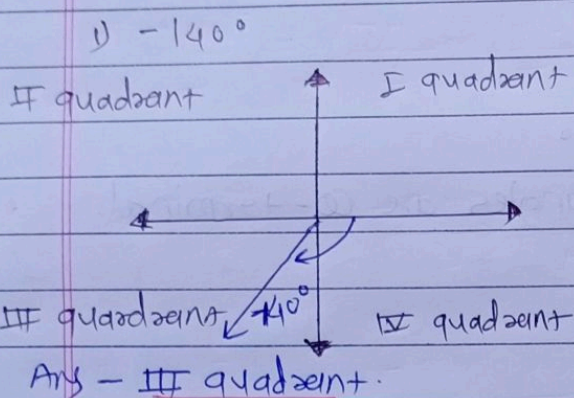 1) -140°
II quadrant I quadrant
III quadrant -140° IV quadrant
Ans - III quadrant.